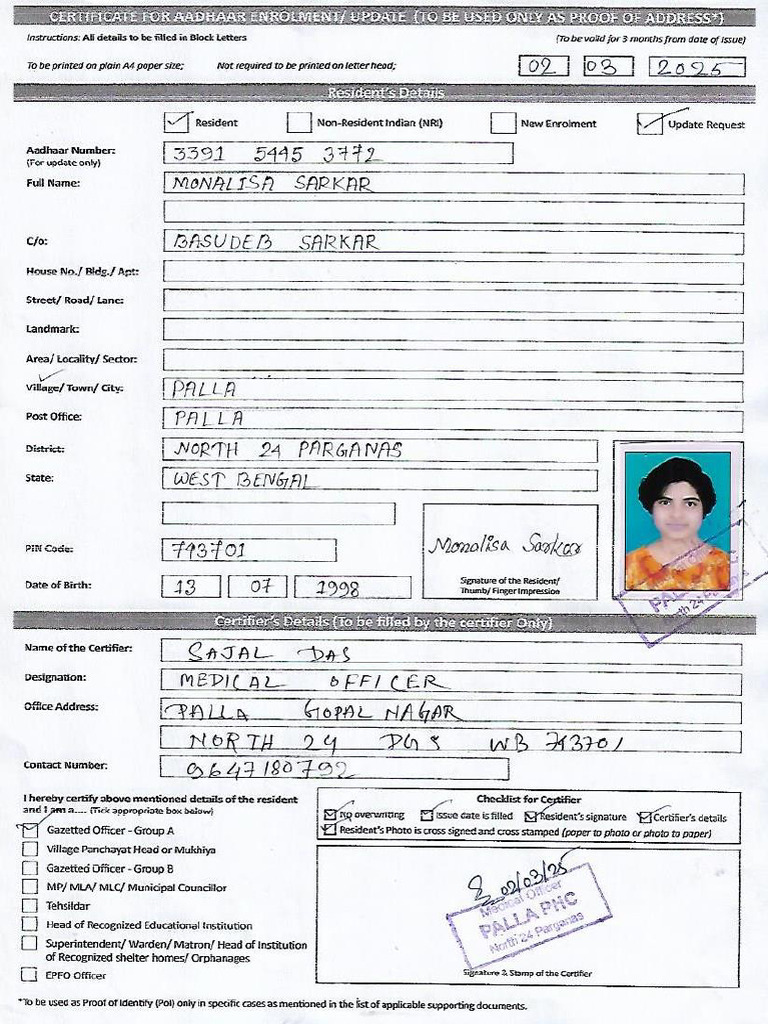 CERTIFICATE FOR AADHAAR ENROLMENT/ UPDATE (TO BE USED ONLY AS PROOF OF ADDRESS*)
Instructions: All details to be filled in Block Letters (To be valid for 3 months from date of issue)
To be printed on plain A4 paper size; Not required to be printed on letter head; 02 03 2025
Resident's Details
Resident Non-Resident Indian (NRI) New Enrolment Update Request
Aadhaar Number: 3391 5445 3772
(For update only)
Full Name: MONALISA SARKAR
C/o: BASUDEB SARKAR
House No./ Bldg./ Apt:
Street/ Road/ Lane:
Landmark:
Area/ Locality/ Sector:
Village/ Town/ City: PALLA
Post Office: PALLA
District: NORTH 24 PARGANAS
State: WEST BENGAL
PIN Code: 743701
Monalisa Sarkar
Signature of the Resident/
Thumb/ Finger Impression
Date of Birth: 13 07 1998
Certifier's Details (To be filled by the certifier Only)
Name of the Certifier: SAJAL DAS
Designation: MEDICAL OFFICER
Office Address: PALLA GOPAL NAGAR
NORTH 24 PGS WB 743701
Contact Number: 9647180792
I hereby certify above mentioned details of the resident
and I am a.... (Tick appropriate box below)
Gazetted Officer - Group A
Village Panchayat Head or Mukhiya
Gazetted Officer - Group B
MP/ MLA/ MLC/ Municipal Councillor
Tehsildar
Head of Recognized Educational Institution
Superintendent/ Warden/ Matron/ Head of Institution
of Recognized shelter homes/ Orphanages
EPFO Officer
Checklist for Certifier
No overwriting Issue date is filled Resident's signature Certifier's details
Resident's Photo is cross signed and cross stamped (paper to photo or photo to paper)
02/03/25
Medical Officer
PALLA PHC
North 24 Parganas
Signature & Stamp of the Certifier
*To be used as Proof of Identity (PoI) only in specific cases as mentioned in the list of applicable supporting documents.